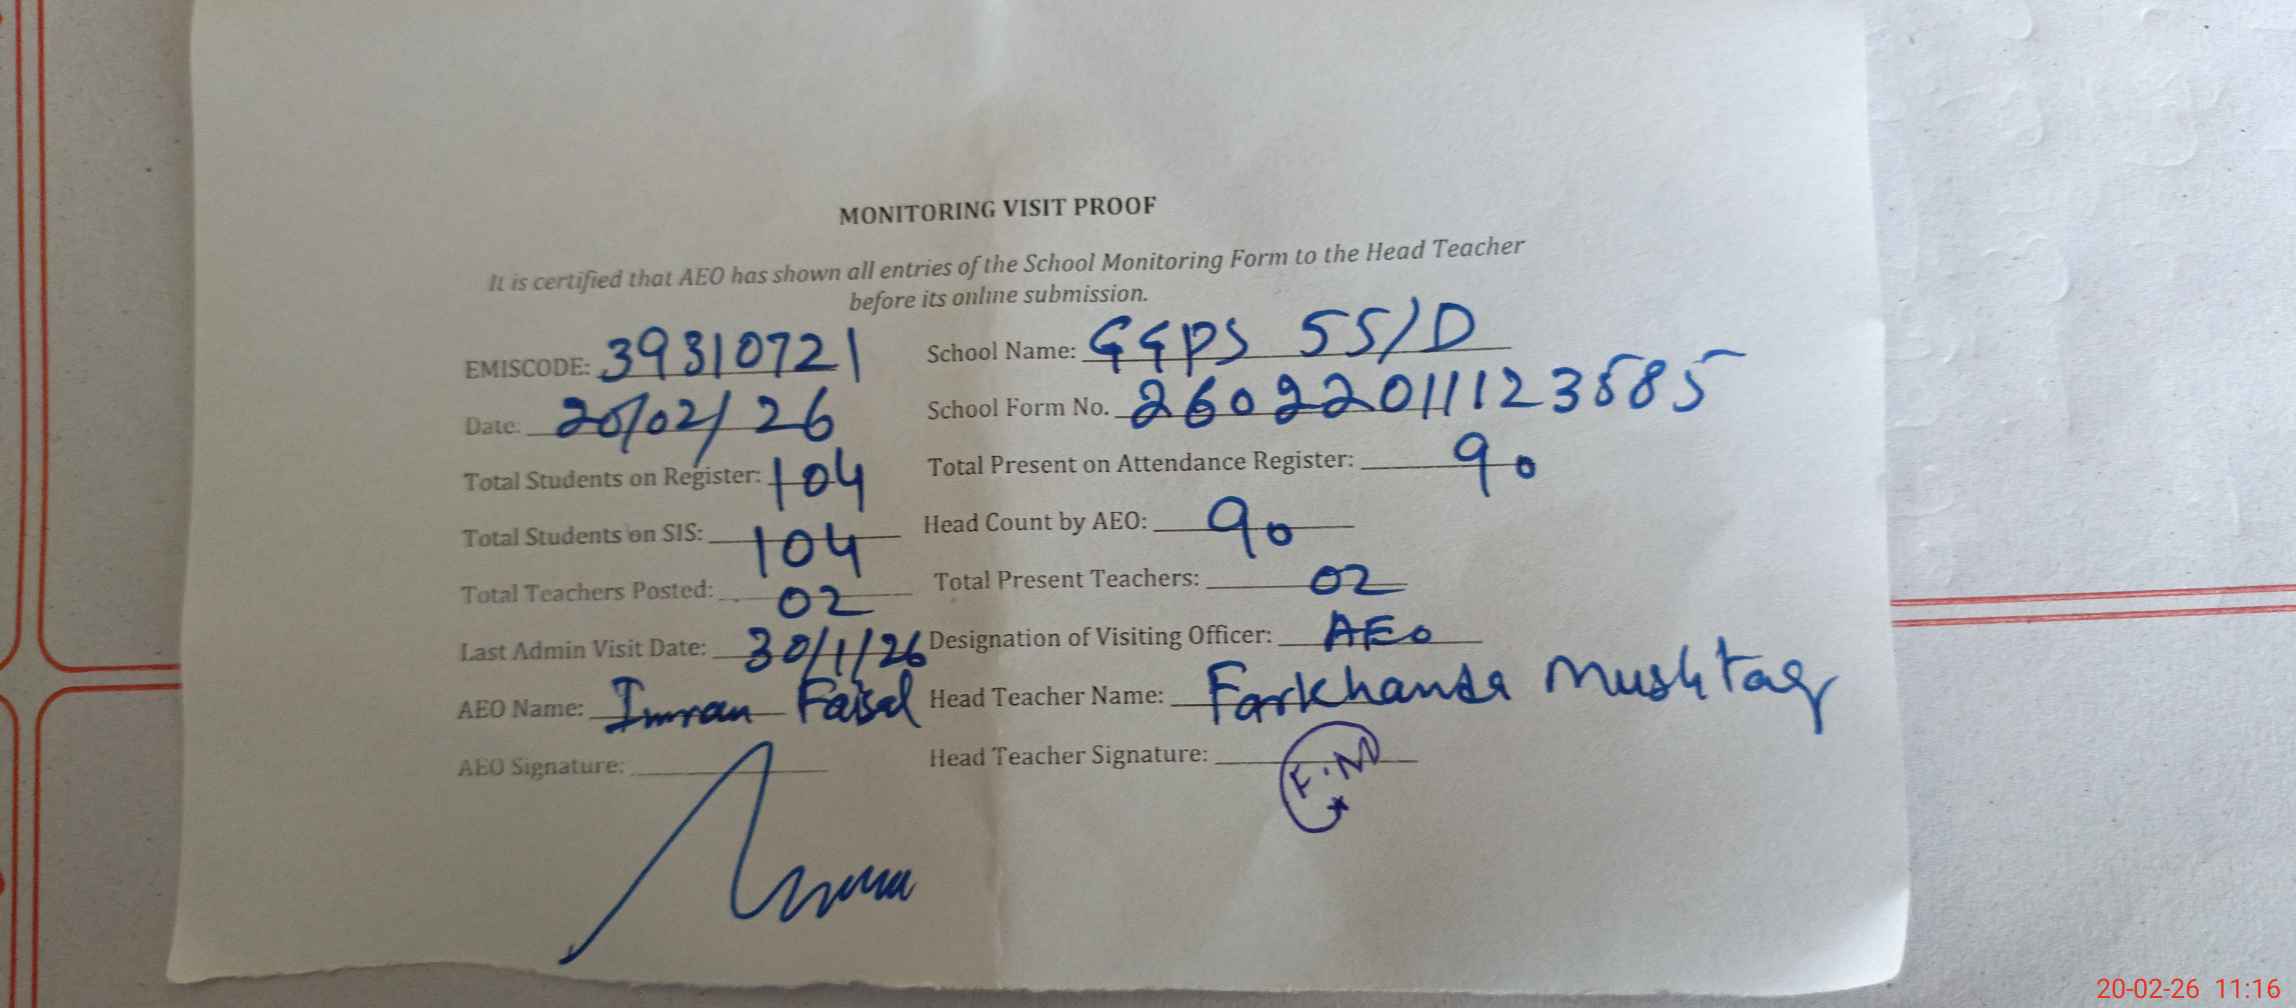 MONITORING VISIT PROOF
It is certified that AEO has shown all entries of the School Monitoring Form to the Head Teacher
before its online submission.
EMISCODE: 39310721 School Name: GGPS 55/D
Date: 20/02/26 School Form No. 260220111123585
Total Students on Register: 104 Total Present on Attendance Register: 90
Total Students on SIS: 104 Head Count by AEO: 90
Total Teachers Posted: 02 Total Present Teachers: 02
Last Admin Visit Date: 30/1/26 Designation of Visiting Officer: AEO
AEO Name: Imran Faisal Head Teacher Name: Farkhanda Mushtaq
AEO Signature: Head Teacher Signature: F.M
20-02-26 11:16